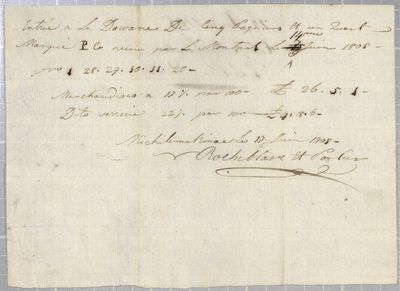 Entrée a La Douane De Cinq Paquions et un Quart
14me
Marqué P G venu par L Montreal Le Juin 1805
No 1 28. 29. 30. 31. 20-
Merchandises a 17½ par 100- £ 26. 5. 1-
Dito verrerie 22½ par 100 £4. 8. 6-
Michilimakinac le 17 Juin 1805-
Rocheblave et Porlier